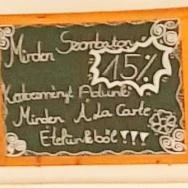 Minden Szombaton
15%
Kedvezményt Adunk
Minden Á La Carte
Ételünkből!!!